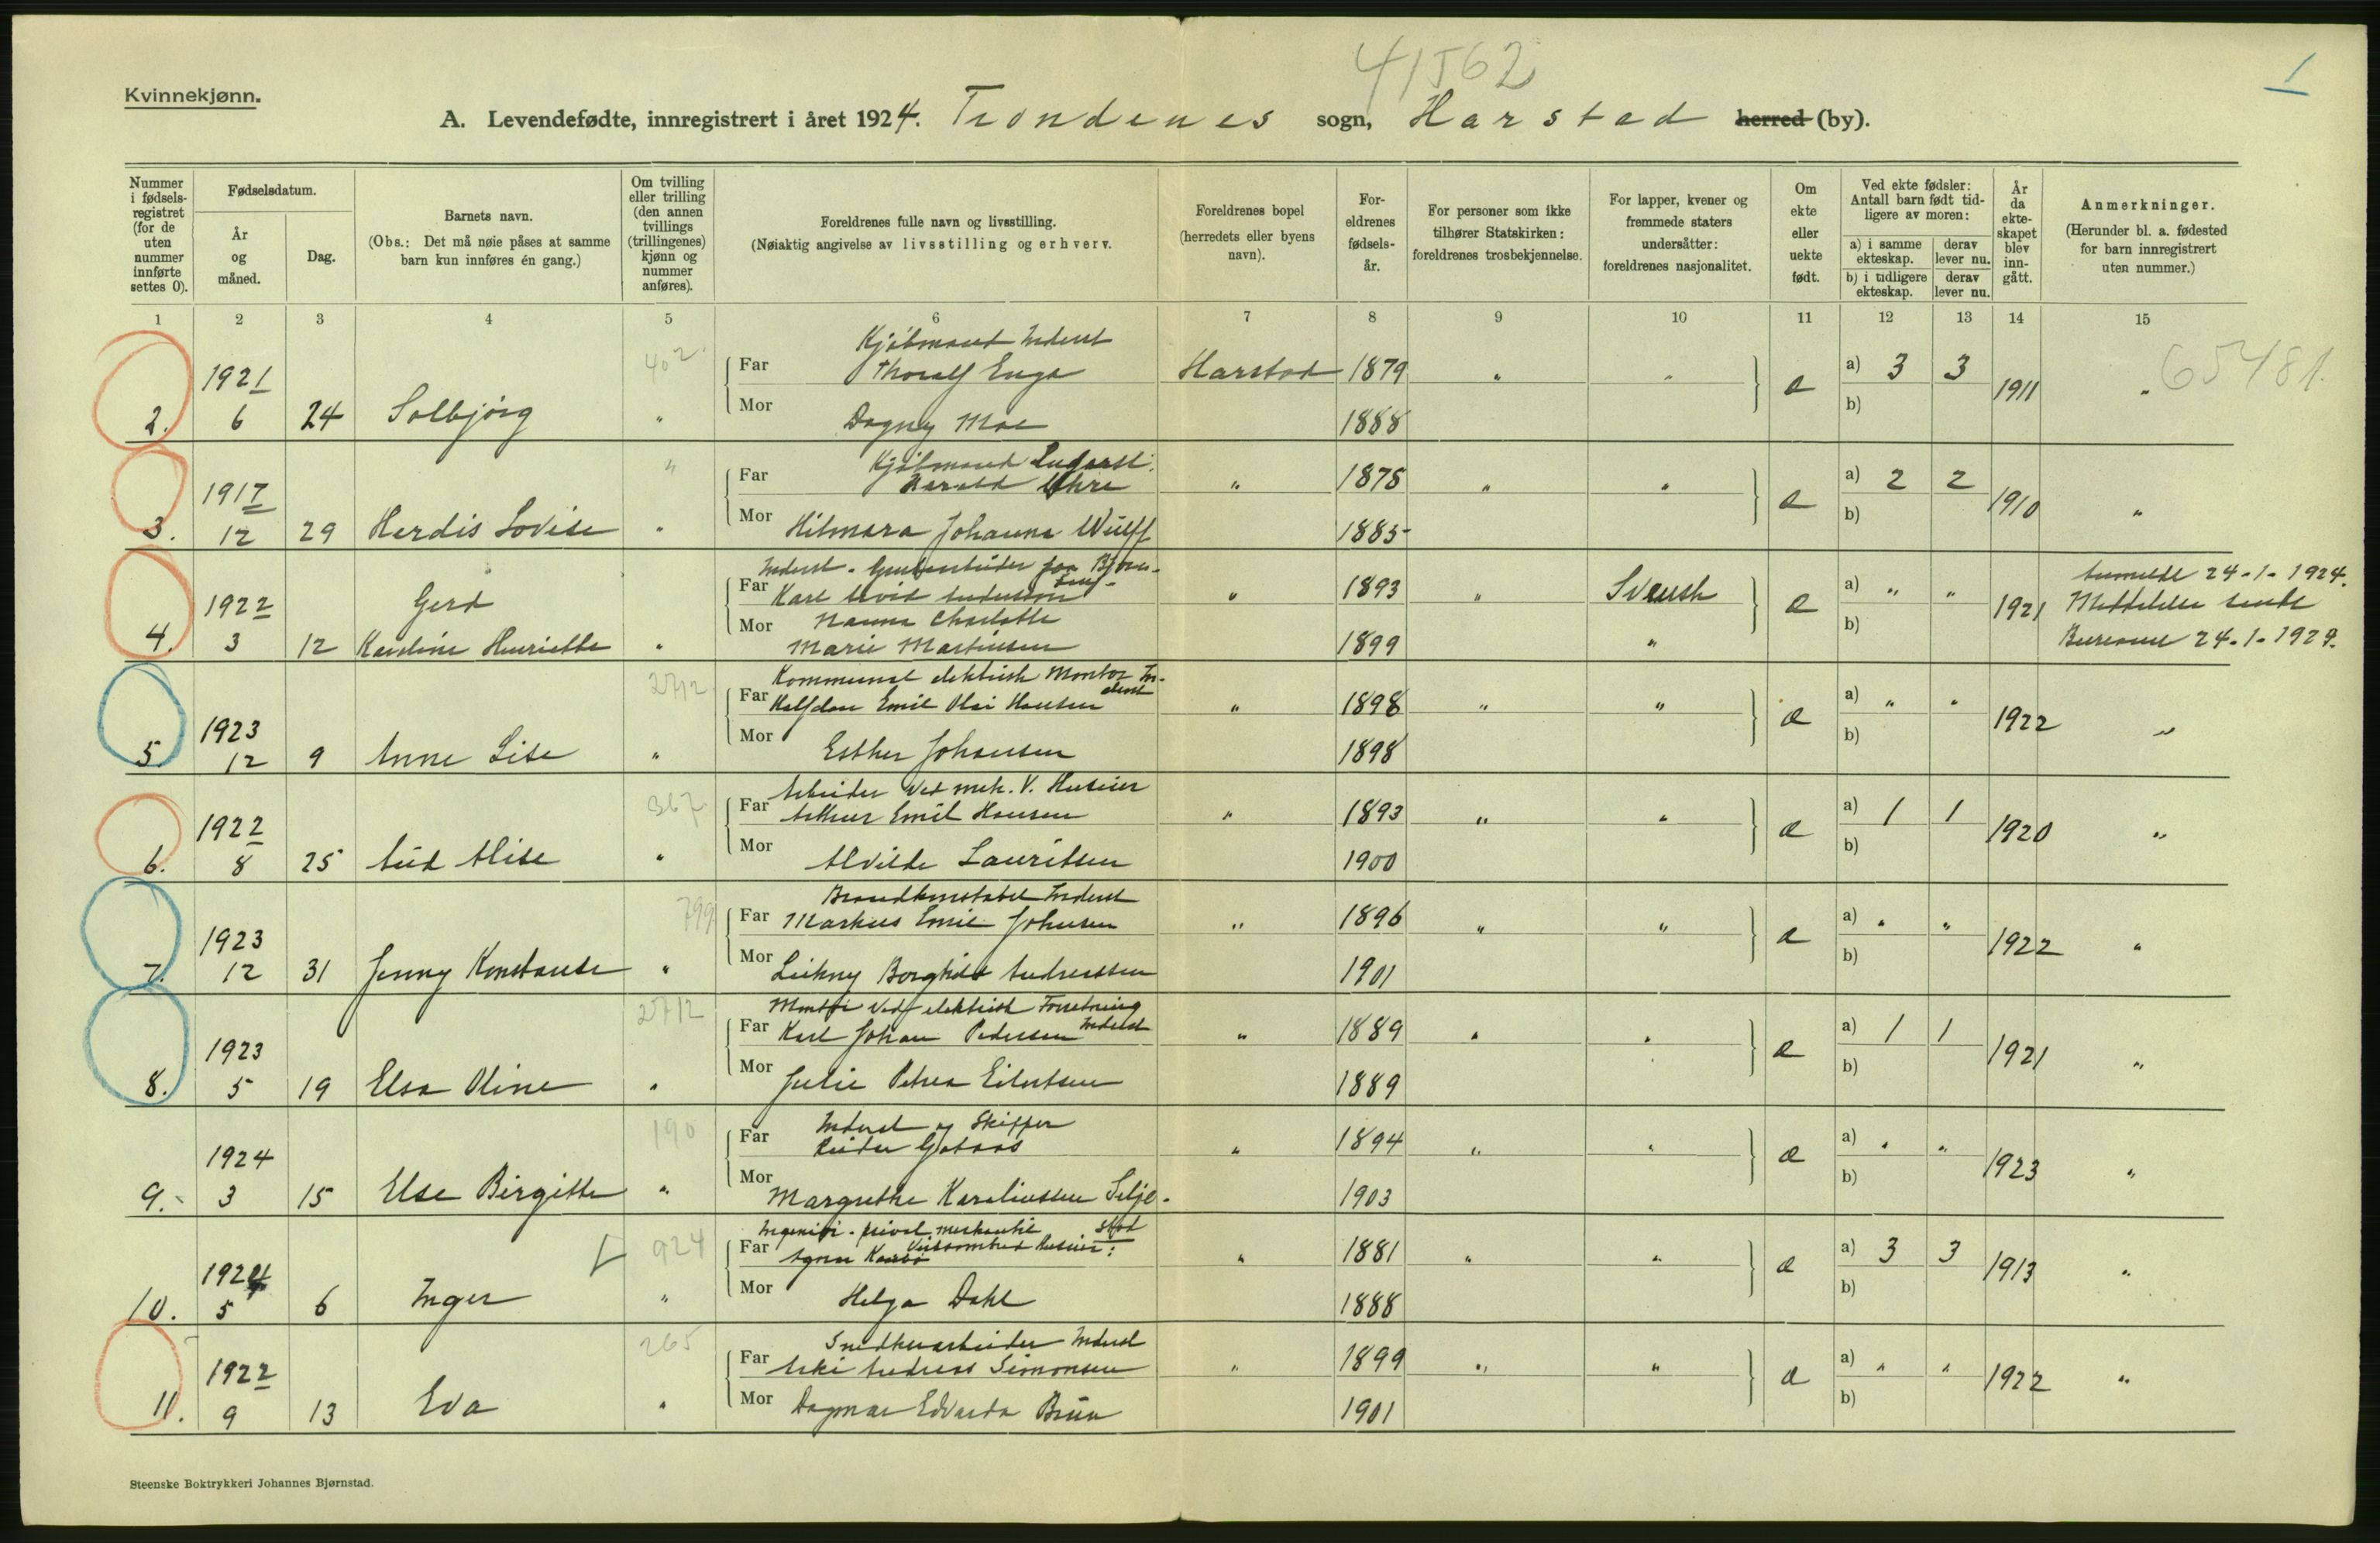 41562
1
Kvinnekjønn.
A. Levendefødte, innregistrert i året 1924. Trondenes sogn, Harstad herred (by).
Nummer i fødsels-registret (for de uten nummer innførte settes 0).
Fødselsdatum.
År og måned.
Dag.
Barnets navn.
(Obs.: Det må nøie påses at samme barn kun innføres én gang.)
Om tvilling eller trilling (den annen tvillings (trillingenes) kjønn og nummer anføres).
Foreldrenes fulle navn og livsstilling.
(Nøiaktig angivelse av livsstilling og erhverv.
Foreldrenes bopel (herredets eller byens navn).
For-eldrenes fødsels-år.
For personer som ikke tilhører Statskirken: foreldrenes trosbekjennelse.
For lapper, kvener og fremmede staters undersåtter: foreldrenes nasjonalitet.
Om ekte eller uekte født.
Ved ekte fødsler: Antall barn født tid-ligere av moren:
a) i samme ekteskap.
derav lever nu.
b) i tidligere ekteskap.
derav lever nu.
År da ekte-skapet blev inn-gått.
Anmerkninger.
(Herunder bl. a. fødested for barn innregistrert uten nummer.)
1 2 3 4 5 6 7 8 9 10 11 12 13 14 15
402 Kjøbmand Inderst
1921 Far Thoralf Enge Harstad 1879 " " a) 3 3 65481.
2. 6 24 Solbjörg " Mor Dagny Moe 1888 e b) 1911 "
" Kjøbmand
1917 Far Harald " 1875 " " a) 2 2
3. 12 29 Herdis Lovise " Mor Hilmara Johanna Wulff 1885 e b) 1910 "
1922 Gerd Far Karl " 1893 " Svensk a) " " 24-1-1924.
4. 3 12 Karoline Henriette " Mor Nanna Charlotte
Marie Martinsen 1899 " e b) 1921 24-1-1924.
2712 Kommunal elektrisk Montør
1923 Far Halfdan Emil Hansen " 1898 " " a) " "
5. 12 9 Anne Lise " Mor Esther Johansen 1898 e b) 1922 "
367 Arbeider ved mek. V. Huseier
1922 Far Arthur Emil Hansen " 1893 " " a) 1 1
6. 8 25 Aud Alise " Mor Alvilde Lauritsen 1900 e b) 1920 "
799 Brandkonstabel Inderst
1923 Far Markus Emil Johnsen " 1896 " " a) " "
7. 12 31 Jenny Konstanse " Mor Leikny Borghild Andreassen 1901 e b) 1922 "
2712 Montør ved elektrisk Forretning
1923 Far Karl Johan Pedersen Inderst " 1889 " " a) 1 1
8. 5 19 Elsa Oline " Mor Julie Petrea Eilertsen 1889 e b) 1921 "
190 Inderst og Skipper
1924 Far Reidar " 1894 " " a) " "
9. 3 15 Else Birgitte " Mor Margrethe Karoliussen Selje-
stad 1903 e b) 1923 "
924 Ingeniør. privat merkantil
Virksomhed Huseier:
1924 Far " 1881 " " a) 3 3
10. 5 6 Inger " Mor Helga Dahl 1888 e b) 1913 "
265 Snedkerarbeider Inderst
1922 Far Andreas Simonsen " 1899 " " a) " "
11. 9 13 Eva " Mor Dagmar Edvarda Brun 1901 e b) 1922 "
Steenske Boktrykkeri Johannes Bjørnstad.